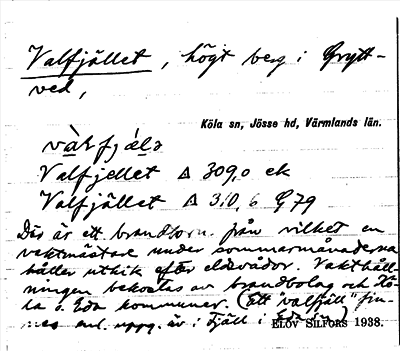 Valfjället, högt berg i Grytt-
ved,
Köla sn, Jösse hd, Värmlands län.
Valfjellet ∆ 309,0 ek
Valfjället ∆ 310,6 G 79
Där är ett brandtorn från vilket en
vaktmästare under sommarmånaderna
håller utkik efter eldsvådor. Vakthåll-
ningen bekostas av brandbolag och Kö-
la o. Eda kommuner. (Ett "valfjäll" fin-
nes enl. uppg. äv. i fjäll i Eda sn)
ELOV SILFORS 1938.